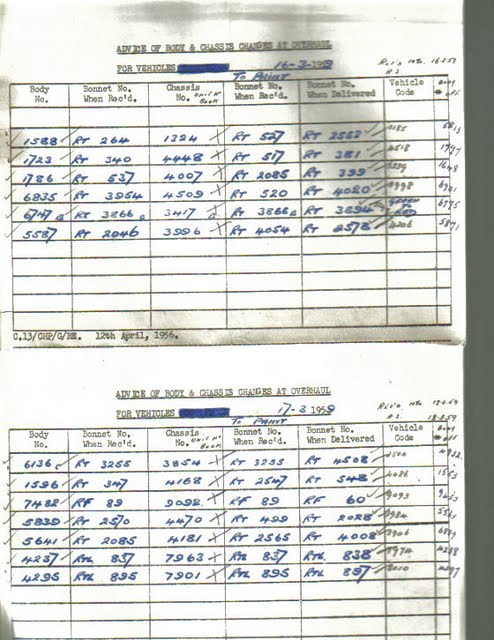 ADVICE OF BODY & CHASSIS CHANGES AT OVERHAUL
FOR VEHICLES 16-3-1959
To PAINT
Body No. Bonnet No. When Rec'd. Chassis No. Unit No Book Bonnet No. When Rec'd. Bonnet No. When Delivered Vehicle Code Body off
1588 RT 264 1324 RT 527 RT 2552
1723 RT 340 4448 RT 517 RT 381
1786 RT 537 4007 RT 2085 RT 399
6835 RT 3954 4509 RT 520 RT 4020
6747 RT 3866 3417 RT 3866 RT 3894 6775
5587 RT 2046 3996 RT 4054 RT 2578 4206 5871
C.13/CHP/G/RE. 12th April, 1956.
ADVICE OF BODY & CHASSIS CHANGES AT OVERHAUL
FOR VEHICLES 17-3 1959
To PAINT
Body No. Bonnet No. When Rec'd. Chassis No. Unit No Book Bonnet No. When Rec'd. Bonnet No. When Delivered Vehicle Code Body off
6136 RT 3255 3854 RT 3255 RT 4508
1596 RT 347 4168 RT 2547 RT 548
7482 RF 89 9092 RF 89 RF 60 9093
5839 RT 2570 4470 RT 499 RT 2028
5641 RT 2085 4181 RT 2565 RT 4008 3906
4237 RTL 837 7963 RTL 837 RTL 838 7974 4238
4295 RTL 895 7901 RTL 895 RTL 897 8010 4297